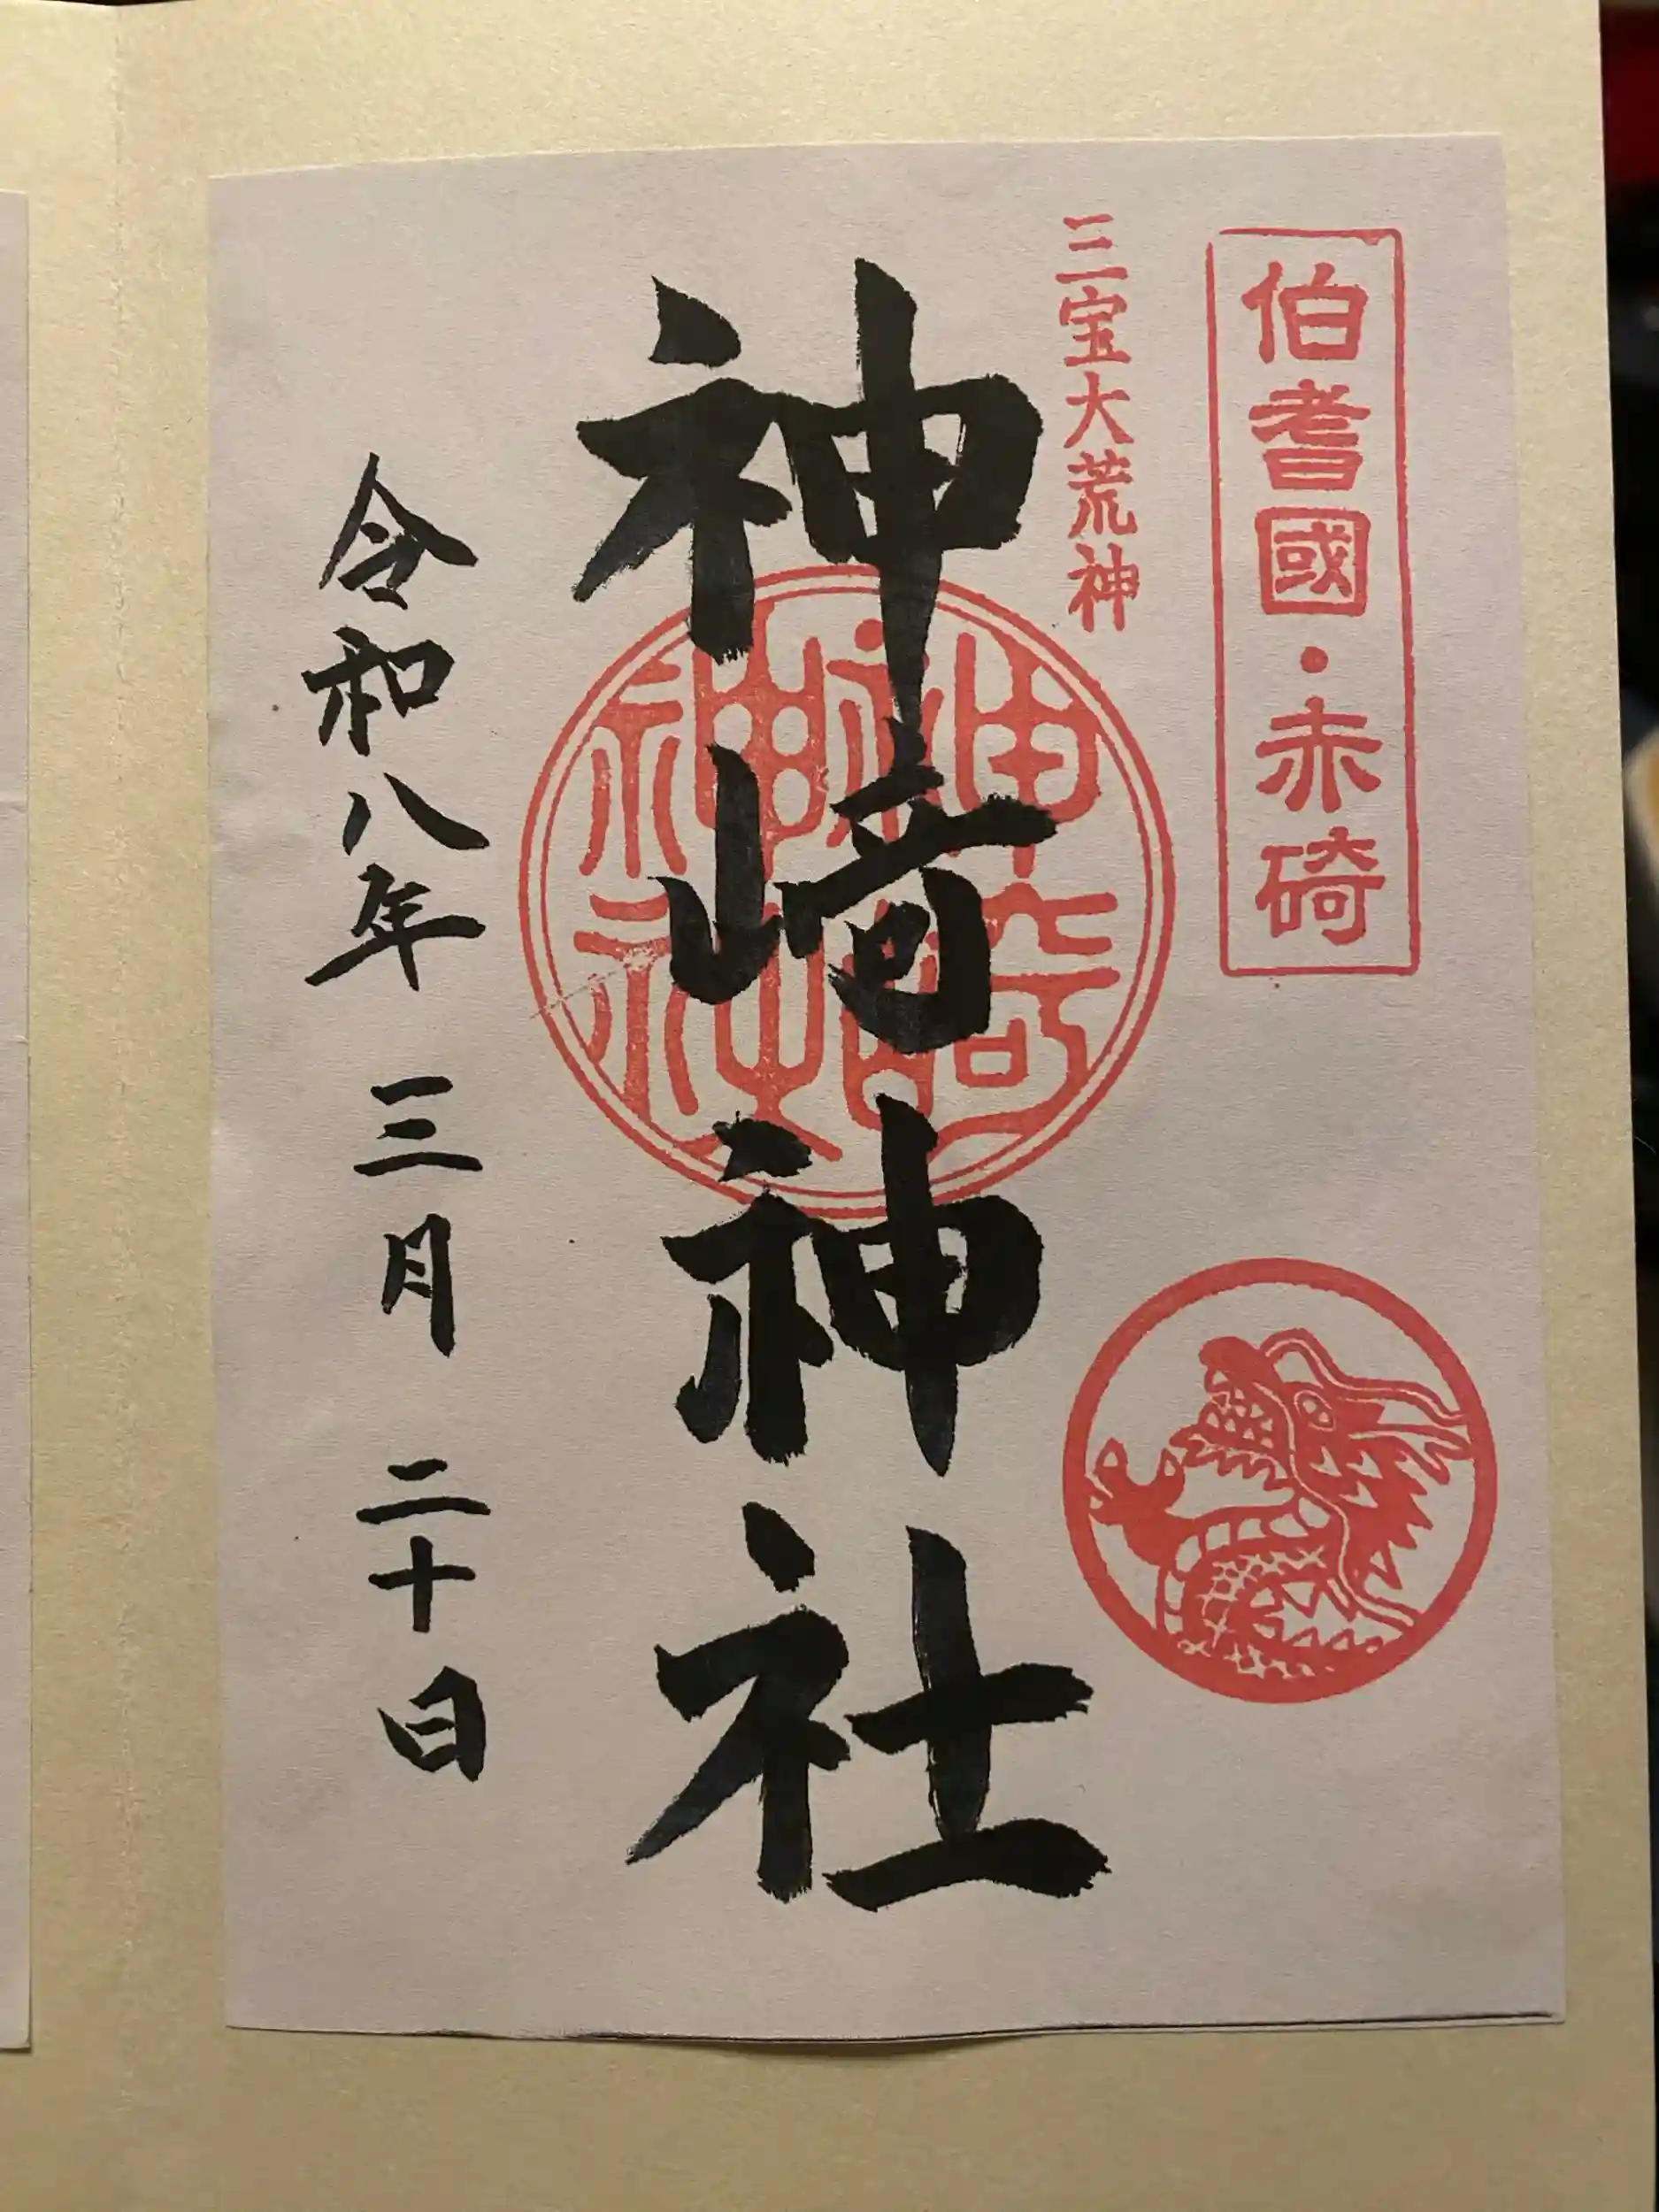 伯耆國・赤碕
三宝大荒神
神﨑神社
神崎神社
令和八年 三月 二十日